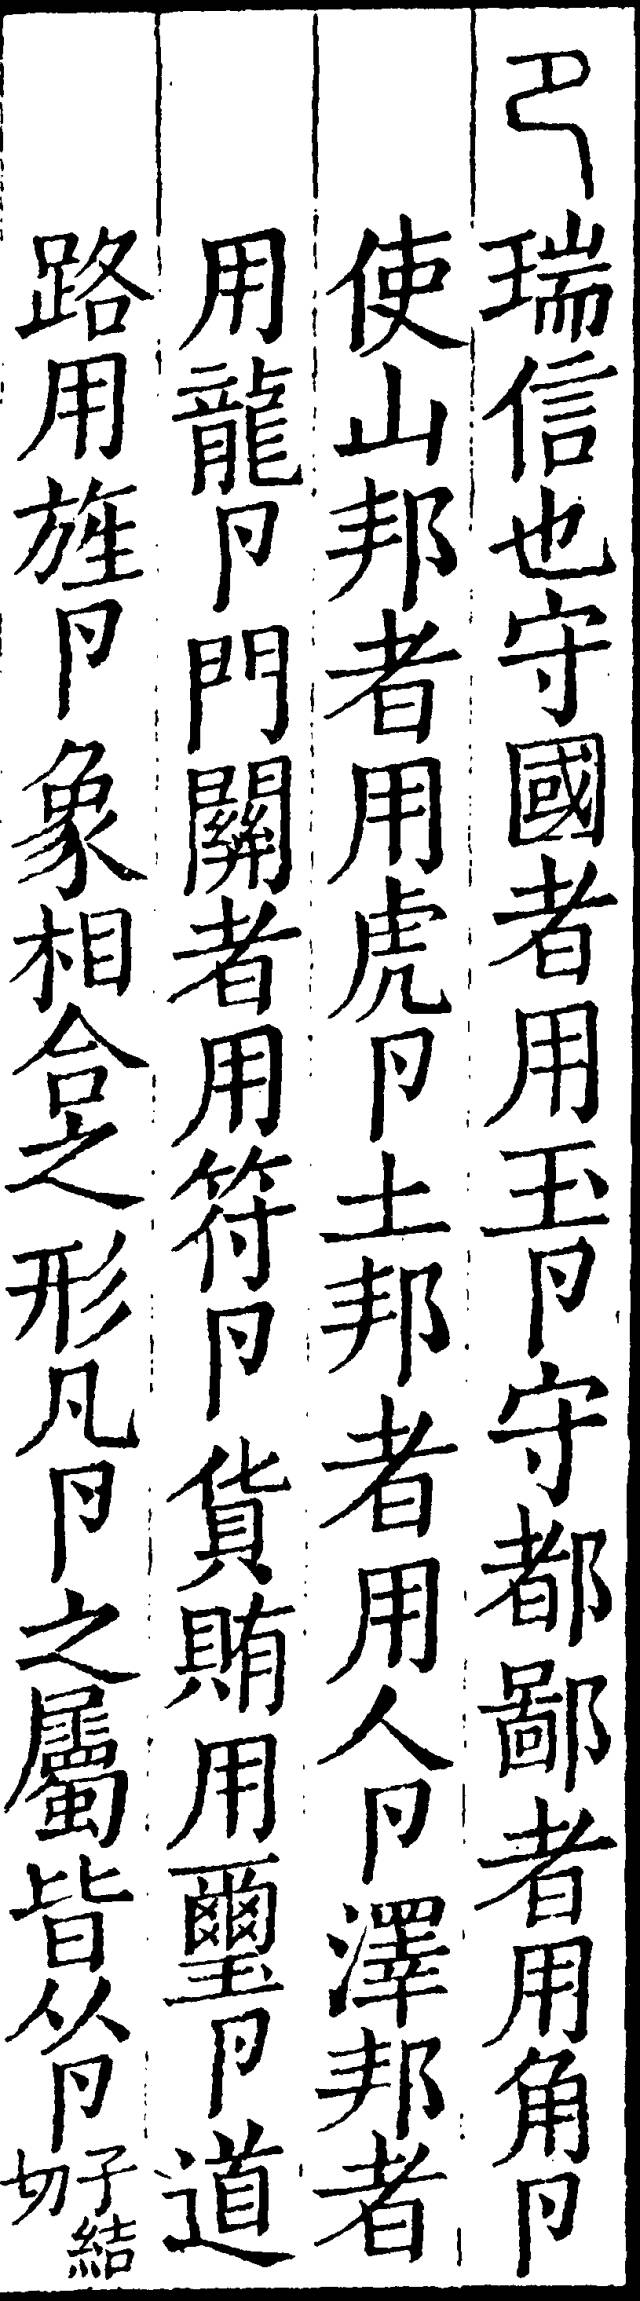 卪瑞信也守國者用玉卪守都鄙者用角卪
使山邦者用虎卪土邦者用人卪澤邦者
用龍卪門關者用符卪貨賄用璽卪道
路用旌卪象相合之形凡卪之屬皆从卪子結切